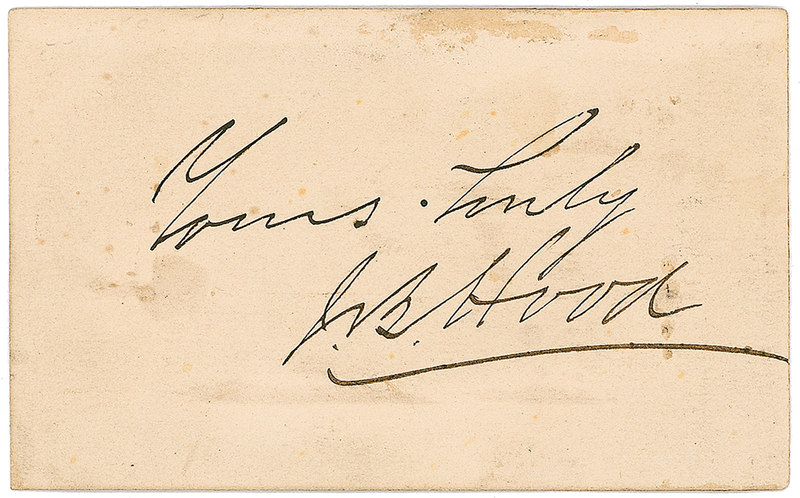 Yours. Truly
J.B. Hood